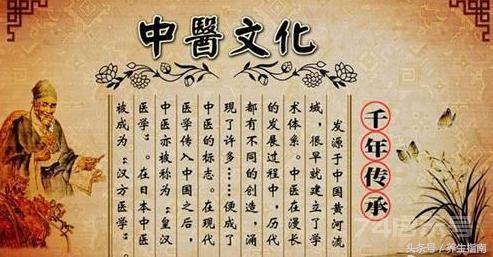 中醫文化
千年传承
发源于中国黄河流
域，很早就建立了学
术体系。中医在漫长
的发展过程中，历代
都有不同的创造，涌
现了许多……便成了
中医的标志。在现代
医学传入中国之后，
中医亦被称为“皇汉
医学”。在日本中医
被成为“汉方医学”。
头条号／养生指南